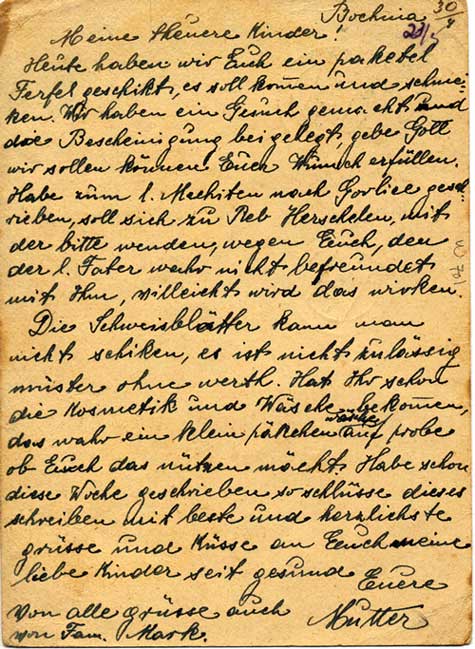 Bochnia 30/4
Meine theuere Kinder!
Heute haben wir Euch ein paketel
Ferfel geschikt, es soll komen und schme-
ken. Wir haben ein Gesuch gemacht und
die Bescheinigung beigelegt, gebe Gott
wir sollen können Euer Wunsch erfüllen.
Habe zum l. Mechiten nach Gorlice gesch-
rieben, soll sich zu Reb Herschelen, mit
der bitte wenden, wegen Euch, den
der l. Fater wahr nicht befreundet
mit Ihm, villeicht wird das wirken.
Die Schweisblätter kann man
nicht schiken, es ist nicht zulässig
müster ohne werth. Hat Ihr schon
die Kosmetik und Wäsche bekomen,
das wahr ein klein päkchen wäsche auf probe
ob Euch das nützen möcht. Habe schon
diese Woche geschrieben so schlüsse dieses
schreiben mit beste und herzlichste
grüsse und Küsse an Euch meine
liebe Kinder seit gesund Euere
Mutter
Von alle grüsse auch
von Fam. Mark.